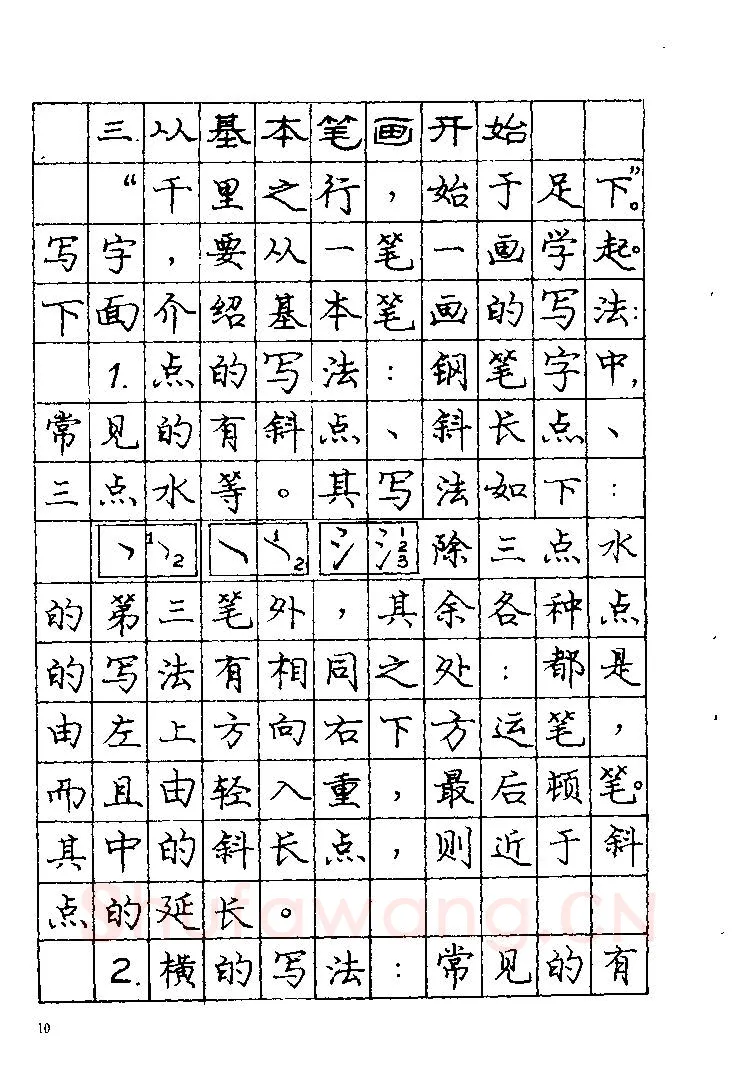 三从基本笔画开始
“千里之行，始于足下”。
写字，要从一笔一画学起。
下面介绍基本笔画的写法：
1.点的写法：钢笔字中，
常见的有斜点、斜长点、
三点水等。其写法如下：
1 2 1 2 1 2 3 除三点水
的第三笔外，其余各种点
的写法有相同之处：都是
由左上方向右下方运笔，
而且由轻入重，最后顿笔。
其中的斜长点，则近于斜
点的延长。
Shufawang.CN
2.横的写法：常见的有
10